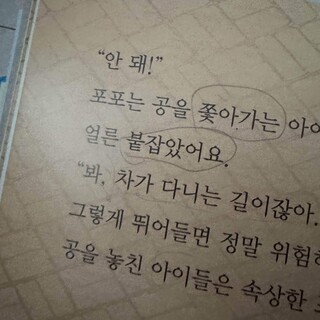 “안 돼!”
포포는 공을 쫓아가는 아이
얼른 붙잡았어요.
“봐, 차가 다니는 길이잖아.
그렇게 뛰어들면 정말 위험하
공을 놓친 아이들은 속상한